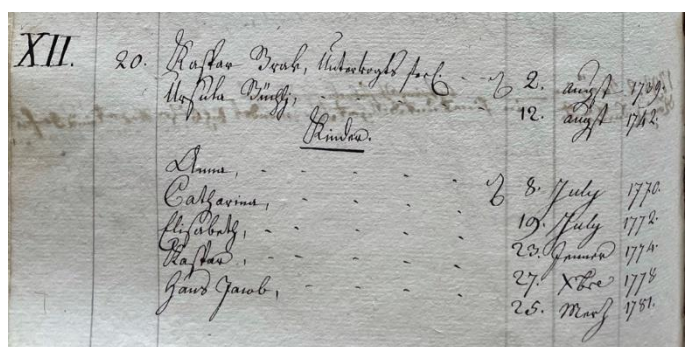 XII. 20. Kaspar Brak, Untervogts sel. 2. augst 1739.
Ursula Büchj, 12. augst 1742.
Kinder.
Anna, 8. July 1770.
Catharina, 19. July 1772.
Elisabeth, 23. Jenner 1774.
Kaspar. 27. Xbre 1778
Hans Jacob, 25. Merz 1781.